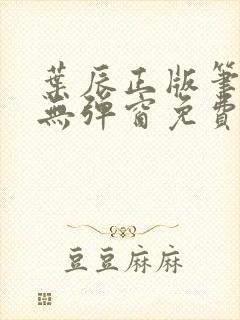 葉辰正版筆
無彈窗免費
豆豆麻麻